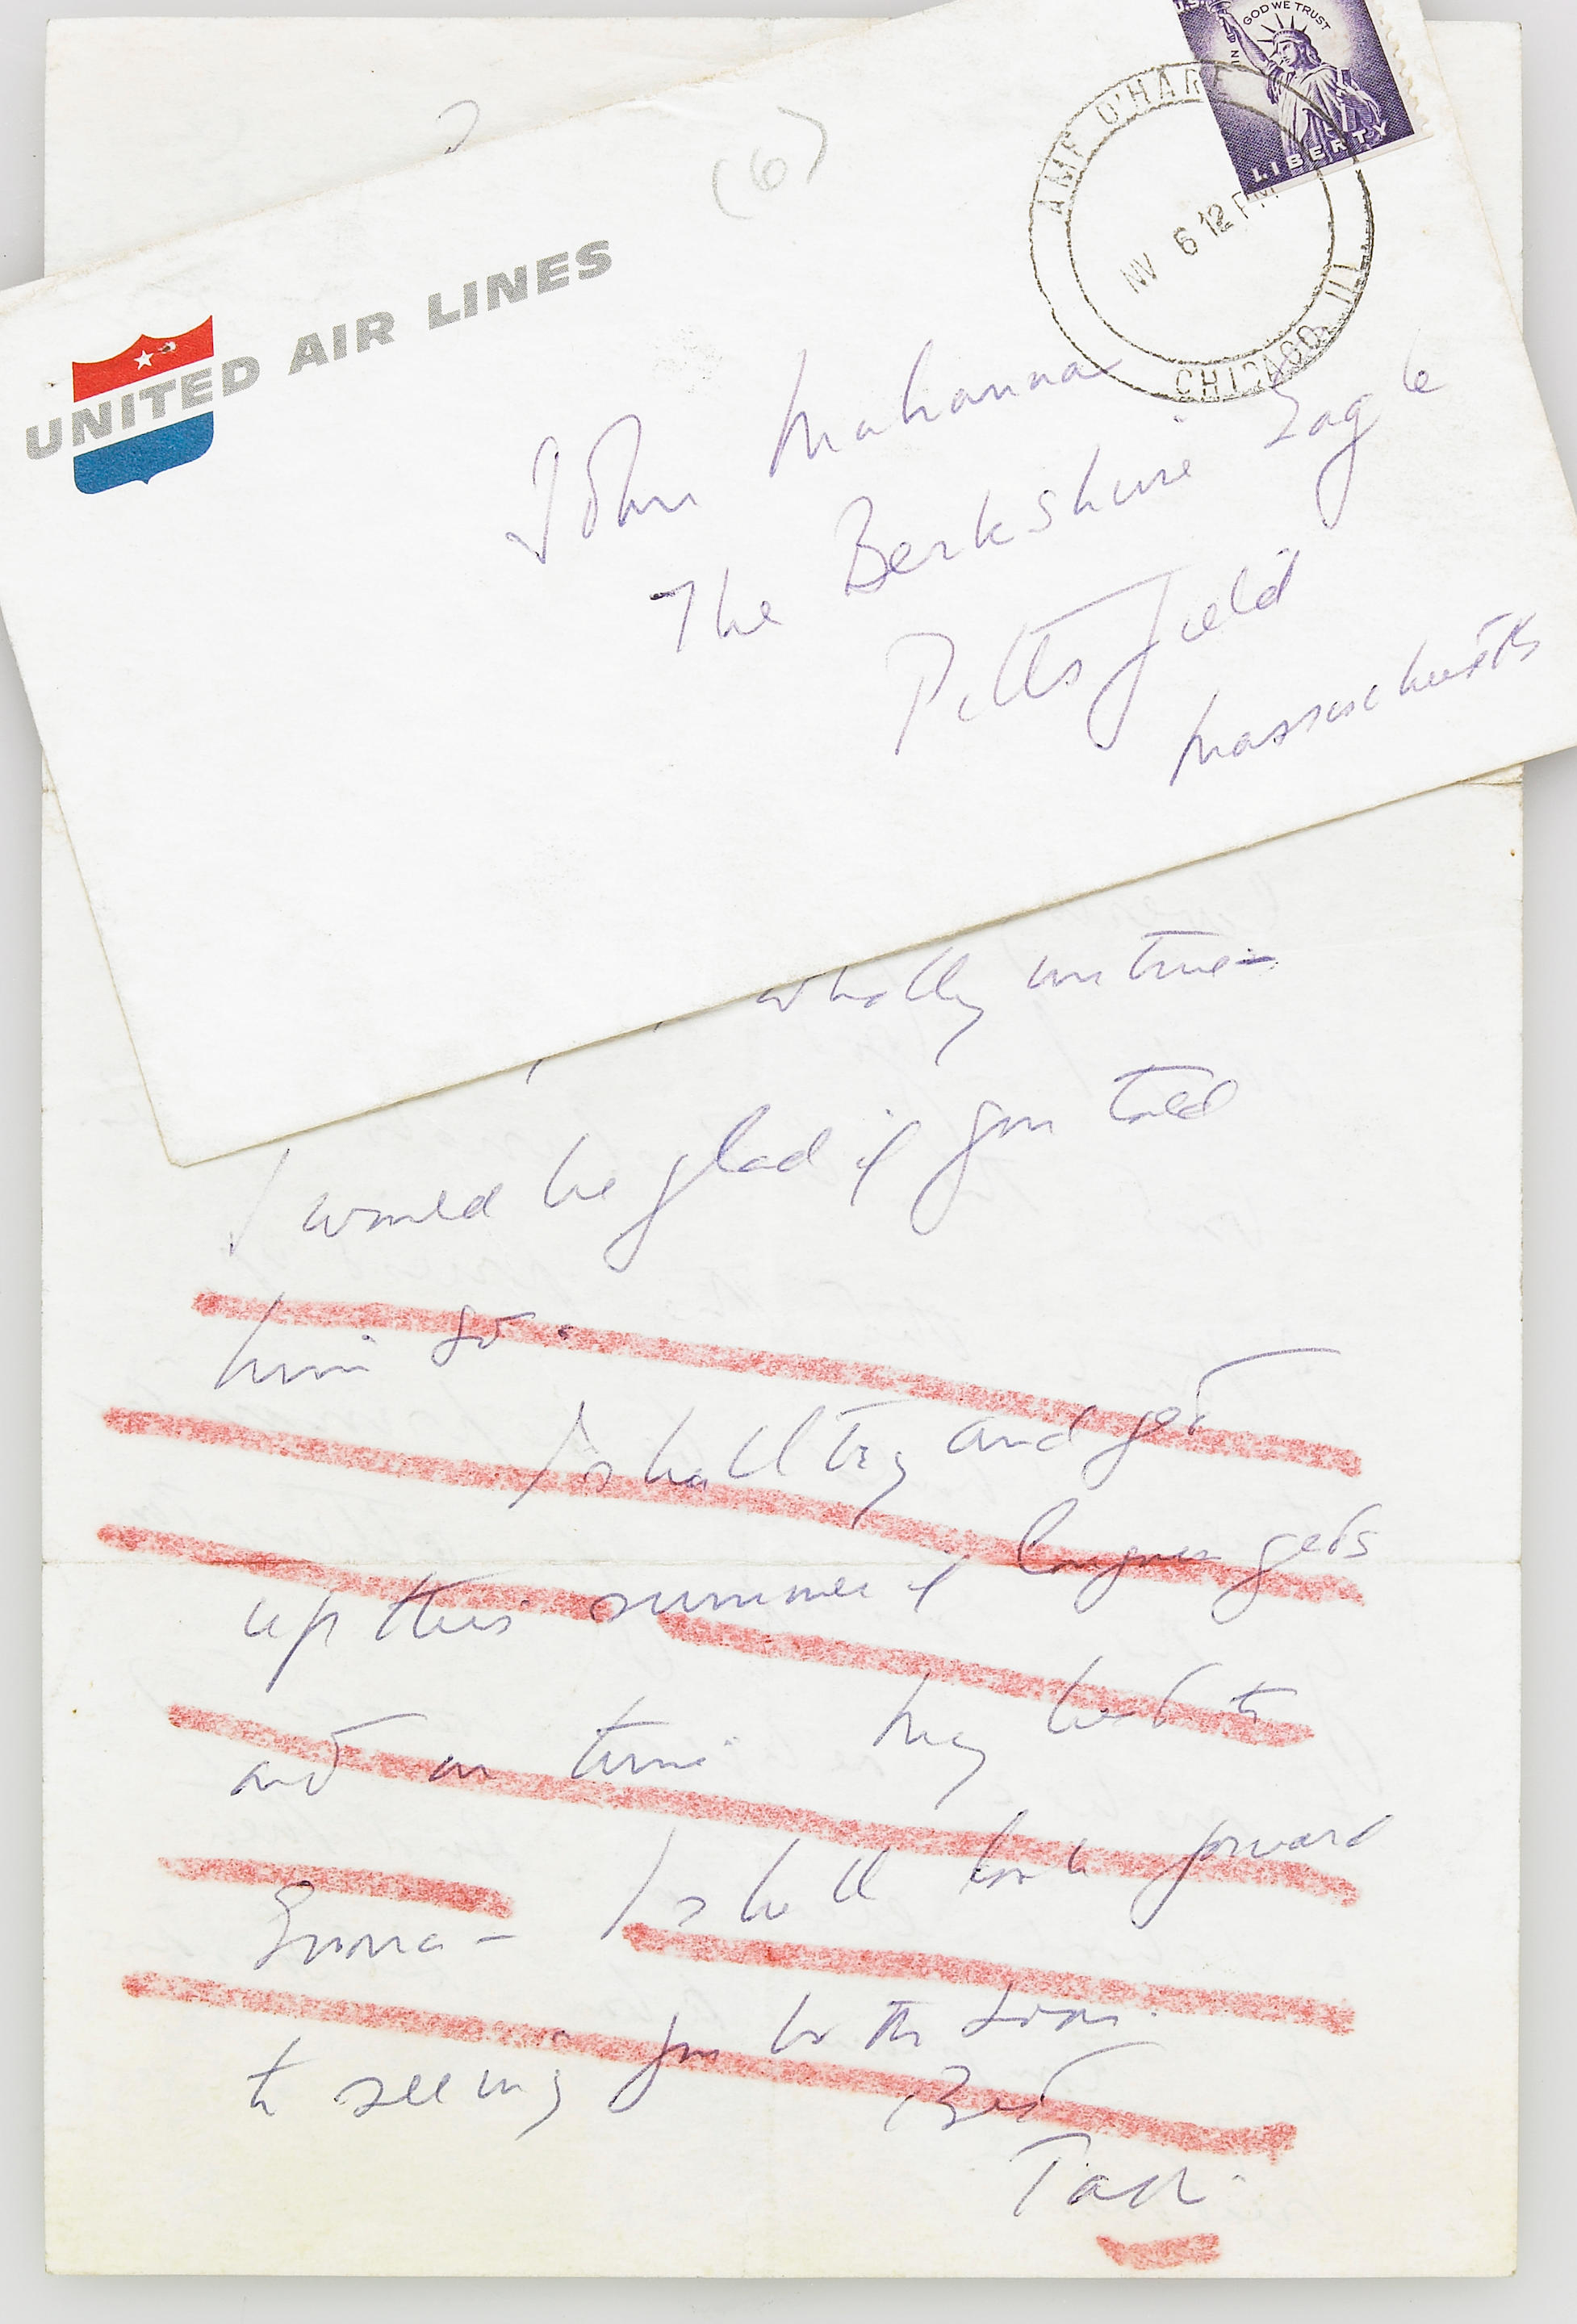 (6)
IN GOD WE TRUST
LIBERTY
AMF O'HARE
NV 6 12 PM
CHICAGO, ILL.
UNITED AIR LINES
John Mahanna
The Berkshire Eagle
Pittsfield
Massachusetts
wholly untrue—
I would be glad if you told
him so.
I shall try and get
up this summer if Congress gets
out in time. My best to
Emma – I shall look forward
to seeing you both soon.
Best